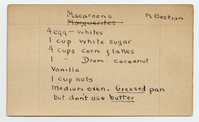 Macaroons M Bostian
Marguerites
4 egg - whites
1 cup white sugar
4 cups corn flakes
1 " Drom. cocoanut
Vanilla
1 cup nuts
Medium oven. Greased pan
but dont use butter